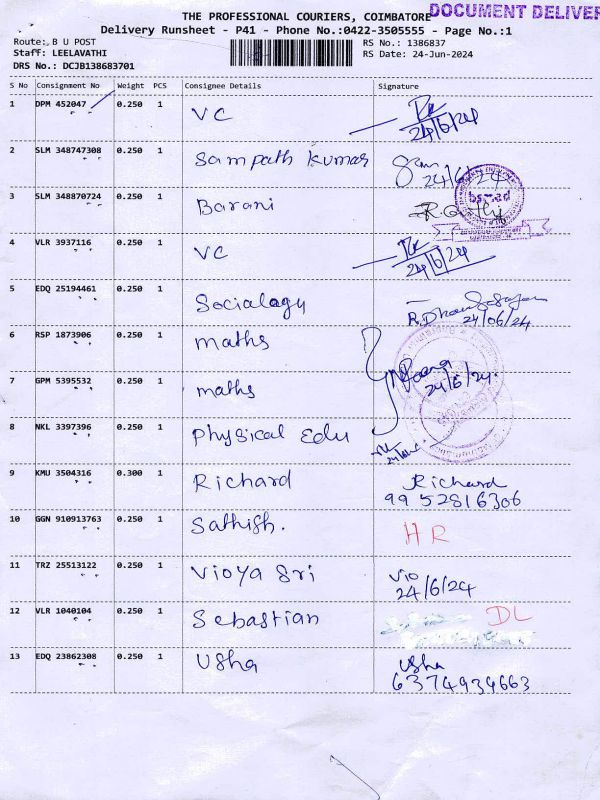 DOCUMENT DELIVER
THE PROFESSIONAL COURIERS, COIMBATORE
Delivery Runsheet - P41 - Phone No.:0422-3505555 - Page No.:1
Route:, B U POST
Staff: LEELAVATHI
DRS No.: DCJB138683701
RS No.: 1386837
RS Date: 24-Jun-2024
S No Consignment No Weight PCS Consignee Details Signature
1 DPM 452047 0.250 1 VC 24/6/24
2 SLM 348747308 0.250 1 Sampath Kumar 24/6/24
3 SLM 348870724 0.250 1 Barani
4 VLR 3937116 0.250 1 VC 24/6/24
5 EDQ 25194461 0.250 1 Socialogy 24/06/24
6 RSP 1873906 0.250 1 maths
7 GPM 5395532 0.250 1 maths 24/6/24.
8 NKL 3397396 0.250 1 Physical Edu
9 KMU 3504316 0.300 1 Richard Richard
9952816306
10 GGN 910913763 0.250 1 Sathish. HR
11 TRZ 25513122 0.250 1 Vioya Sri Vio
24/6/24
12 VLR 1040104 0.250 1 Sebastian DL
13 EDQ 23862308 0.250 1 Usha Usha
6374934663